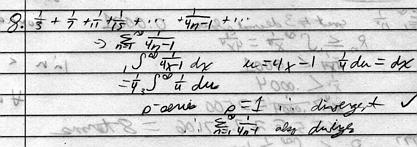 8. 1/3 + 1/7 + 1/11 + 1/15 + ... + 1/4n-1 + ...
⇒ ∑ n=1 ∞ 1/4n-1
1∫∞ 1/4x-1 dx u=4x-1 1/4 du = dx
= 1/4 3∫∞ 1/u du
p-series p=1 ∴ divergent ✓
∴ ∑ n=1 ∞ 1/4n-1 also diverges